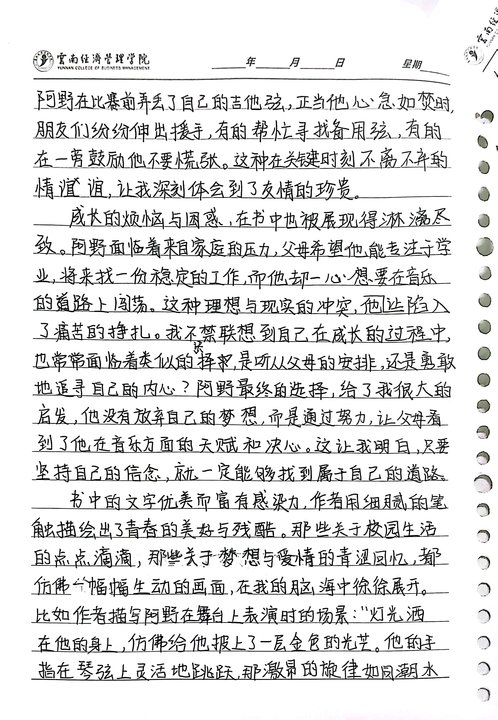 雲南经濟管理学院
YUNNAN COLLEGE OF BUSINESS MANAGEMENT
年 月 日 星期
阿野在比赛前弄丢了自己的吉他弦，正当他心急如焚时，
朋友们纷纷伸出援手，有的帮忙寻找备用弦，有的
在一旁鼓励他不要慌张。这种在关键时刻不离不弃的
情谊，让我深刻体会到了友情的珍贵。
成长的烦恼与困惑，在书中也被展现得淋漓尽
致。阿野面临着来自家庭的压力，父母希望他能专注于学
业，将来找一份稳定的工作，而他却一心想要在音乐
的道路上闯荡。这种理想与现实的冲突，他让陷入
了痛苦的挣扎。我不禁联想到自己在成长的过程中，
也常常面临着类似的抉择，是听从父母的安排，还是勇敢
地追寻自己的内心？阿野最终的选择，给了我很大的
启发，他没有放弃自己的梦想，而是通过努力，让父母看
到了他在音乐方面的天赋和决心。这让我明白，只要
坚持自己的信念，就一定能够找到属于自己的道路。
书中的文字优美而富有感染力，作者用细腻的笔
触描绘出了青春的美好与残酷。那些关于校园生活
的点点滴滴，那些关于梦想与爱情的青涩回忆，都
仿佛一幅幅生动的画面，在我的脑海中徐徐展开。
比如作者描写阿野在舞台上表演时的场景：“灯光洒
在他的身上，仿佛给他披上了一层金色的光芒。他的手
指在琴弦上灵活地跳跃，那激昂的旋律如同潮水